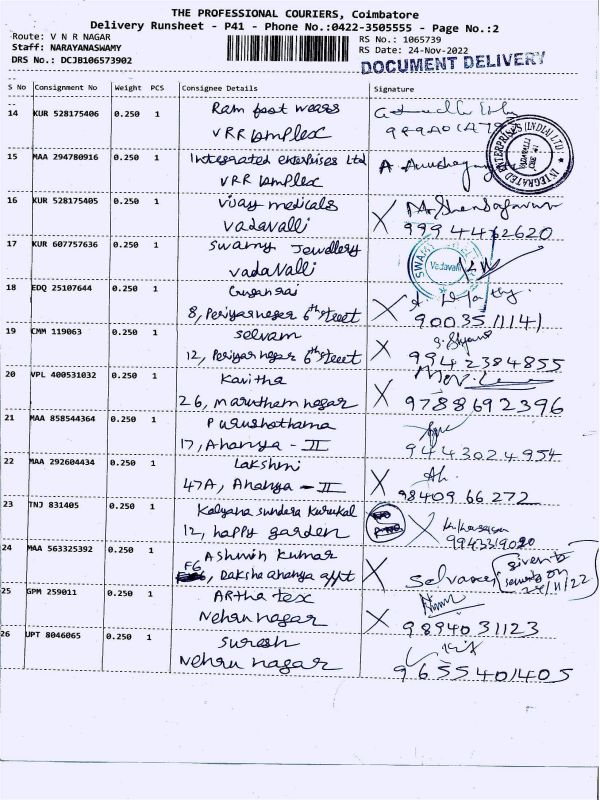 THE PROFESSIONAL COURIERS, Coimbatore
Delivery Runsheet - P41 - Phone No.:0422-3505555 - Page No.:2
Route: V N R NAGAR
Staff: NARAYANASWAMY
DRS No.: DCJB106573902
RS No.: 1065739
RS Date: 24-Nov-2022
DOCUMENT DELIVERY
S No Consignment No Weight PCS Consignee Details Signature
14 KUR 528175406 0.250 1 Ram foot wears
VRR complex
15 MAA 294780916 0.250 1 Integrated enterprises Ltd
VRR complex
INTEGRATED ENTERPRISES (INDIA) LTD.
VADAVALLI
16 KUR 528175405 0.250 1 vijay medicals
vadavalli 9994412620
17 KUR 607757636 0.250 1 swamy Jewellery
vadavalli
SWAMY
Vadavalli
18 EDQ 25107644 0.250 1
8, Periyar nagar 6th street 9003511141
19 CMM 119063 0.250 1 selvam
12, Periyar nagar 6th street 9942384855
20 VPL 400531032 0.250 1 Kavitha
26, marutham nagar 9788692396
21 MAA 858544364 0.250 1 Purushothama
17, Ananya - II 9443024954
22 MAA 292604434 0.250 1 Lakshmi
47A, Ananya - II 98409 66 272
23 TNJ 831405 0.250 1 Kalyana sundara Kurukal
12, happy garden 9943319020
24 MAA 563325392 0.250 1 Ashwin Kumar
F6, Daksha ananya appt
given to
security on
24/11/22
25 GPM 259011 0.250 1 Artha tex
Nehru nagar 9894031123
26 UPT 8046065 0.250 1 suresh
Nehru nagar 9655401405